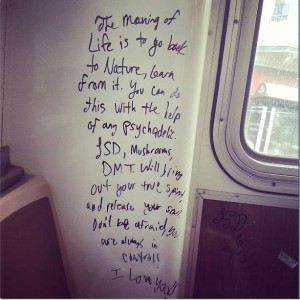 The Meaning of
Life is to go back
to Nature, learn
from it. You can do
this with the help
of any psychadelic.
LSD, Mushrooms,
DMT. Will bring
out your true spirit
and release your soul
Don't be afraid, you
are always in
control!
I Love You!!